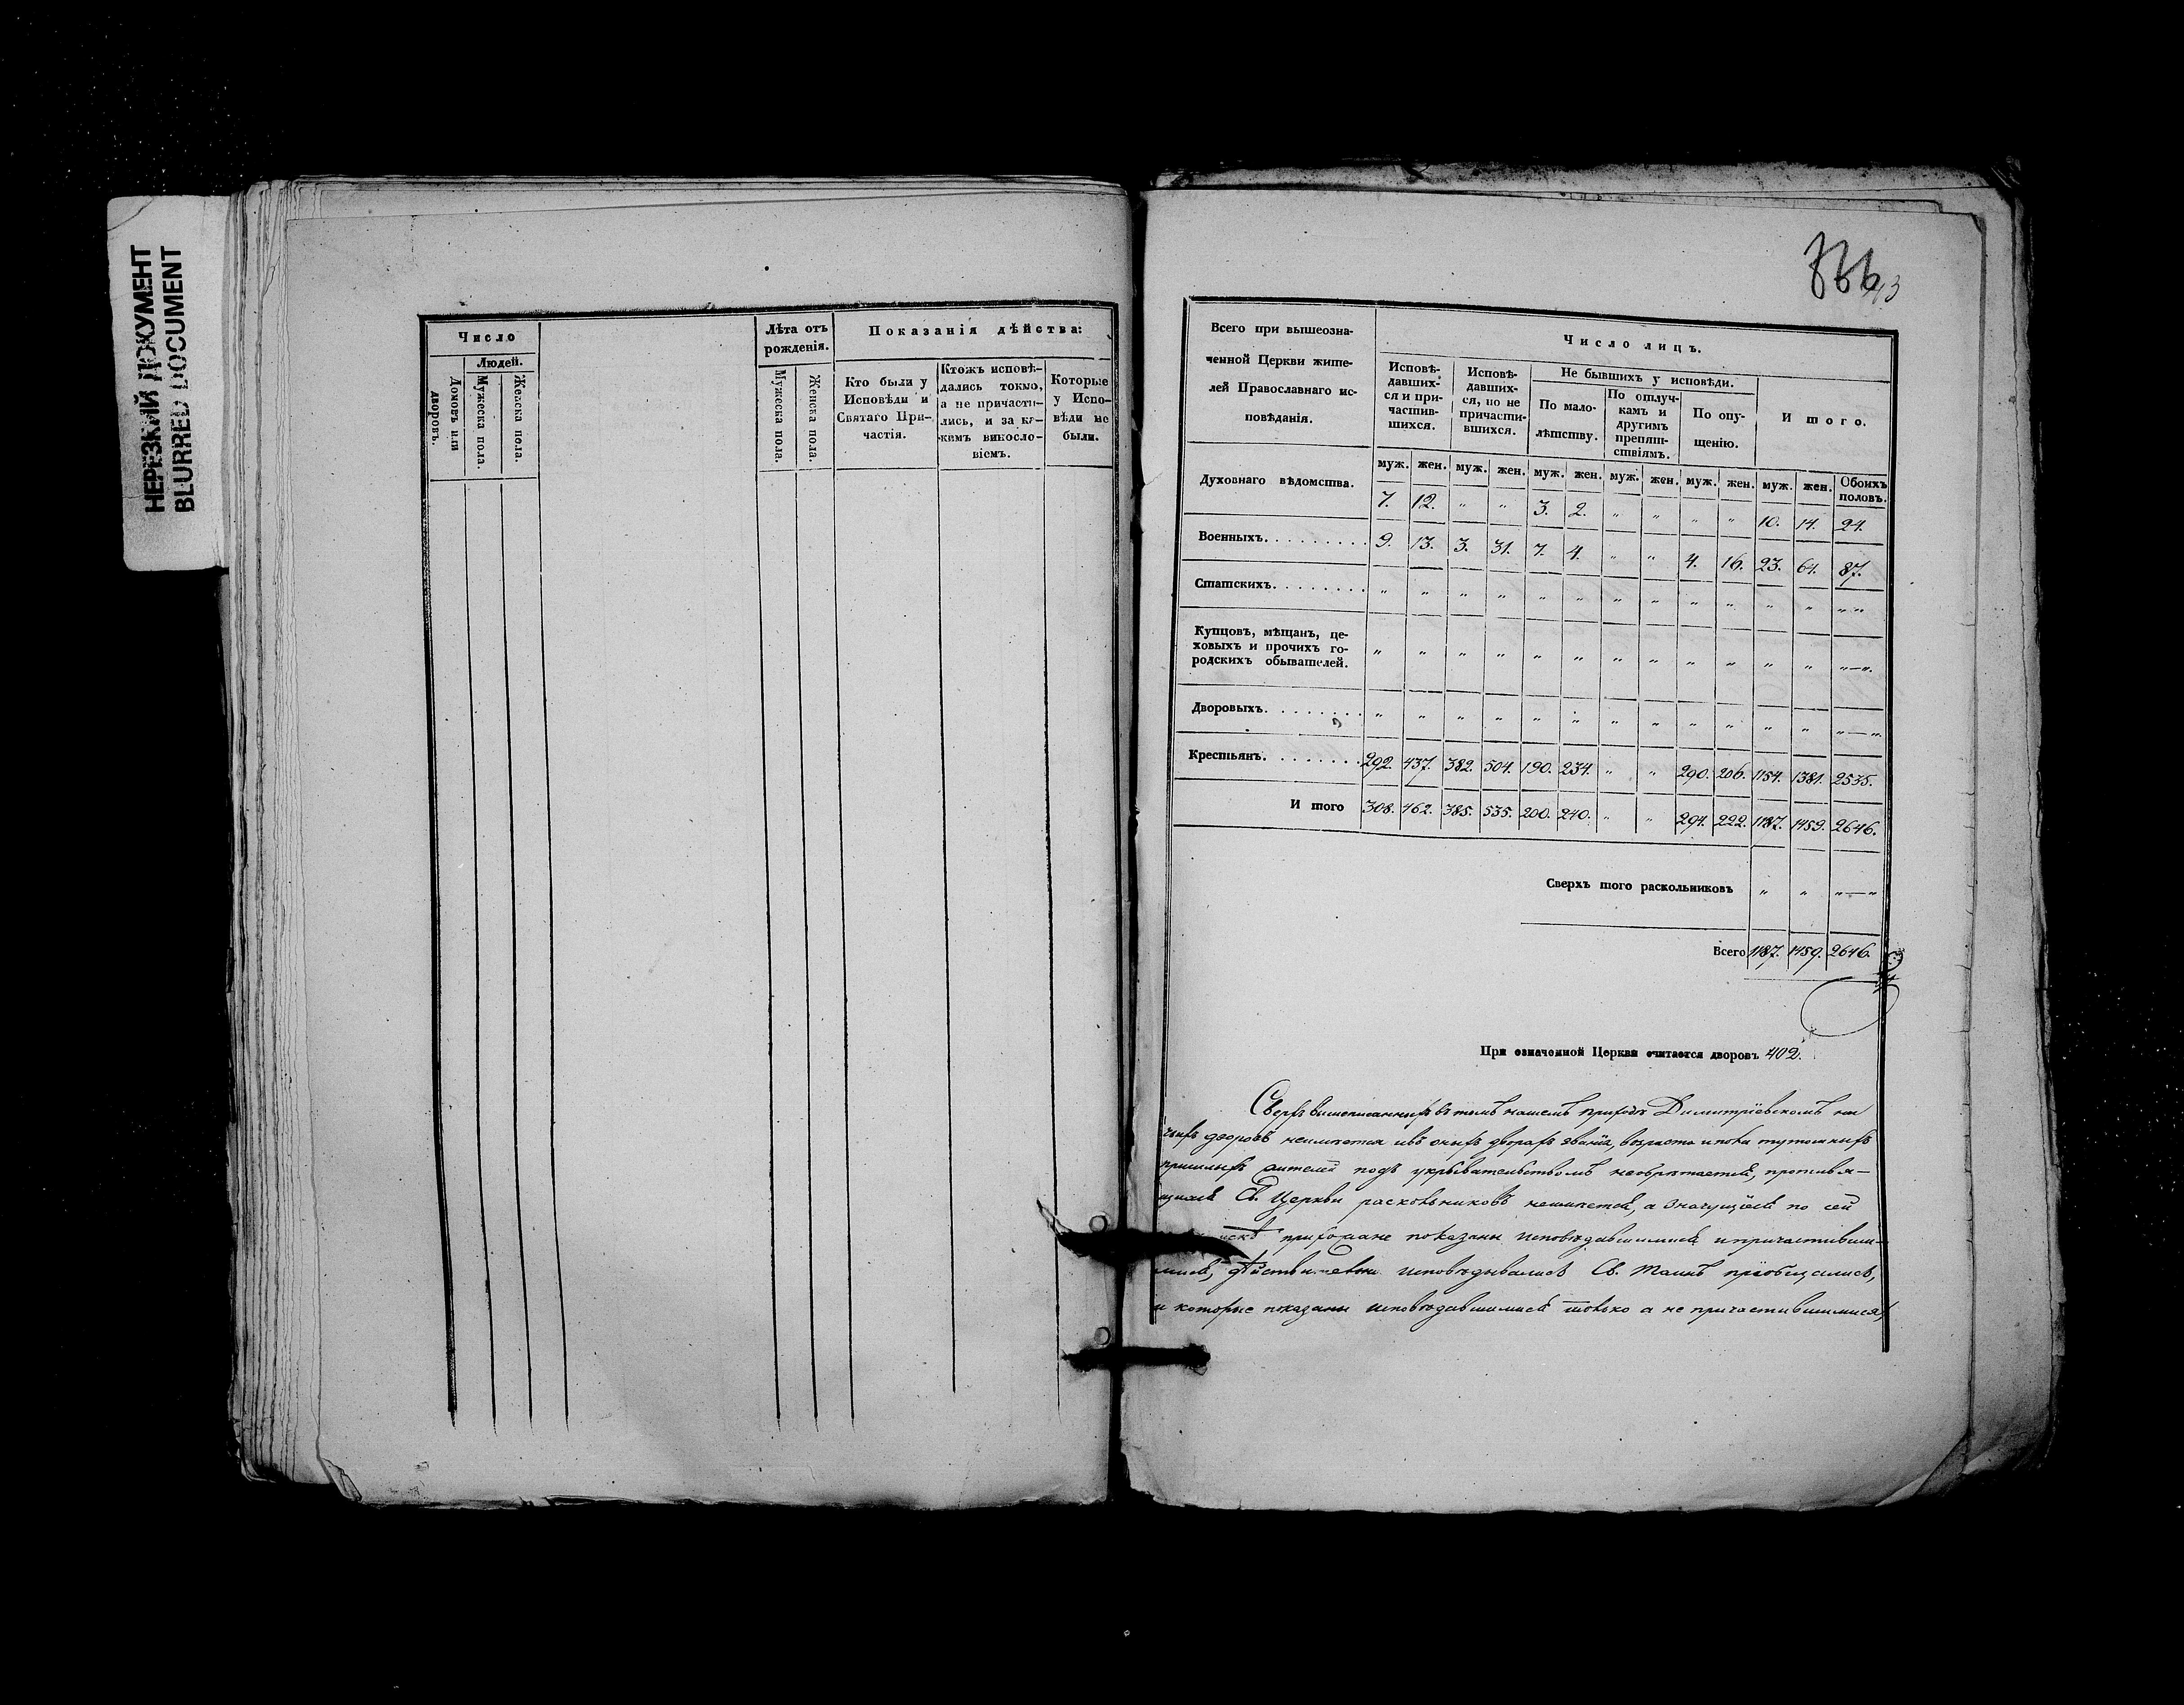 НЕРЕЗКИЙ ДОКУМЕНТ
BLURRED DOCUMENT
Число
Людей.
Домовъ или дворовъ.
Мужеска пола.
Женска пола.
Лѣта отъ рожденія.
Мужеска пола.
Женска пола.
Показанія дѣйства:
Кто были у
Исповѣди и
Святаго При-
частія.
Ктожъ исповѣ-
дались токмо,
а не причасти-
лись, и за ка-
кимъ виносло-
віемъ.
Которые
у Испо-
вѣди не
были.
Всего при вышеозна-
ченной Церкви жите-
лей Православнаго ис-
повѣданія.
Число лицъ.
Исповѣ-
давших-
ся и при-
частив-
шихся.
Исповѣ-
давших-
ся, но не
причасти-
вшихся.
Не бывшихъ у исповѣди.
По мало-
лѣтству.
По отлуч-
камъ и
другимъ
препят-
ствіямъ.
По опу-
щенію.
И того.
муж. жен. муж. жен. муж. жен. муж. жен. муж. жен. муж. жен. Обоихъ половъ.
Духовнаго вѣдомства. 7. 12. „ „ 3. 2. „ „ „ „ 10. 14. 24.
Военныхъ. . . . . . . . . 9. 13. 3. 31. 7. 4. „ „ 4. 16. 23. 64. 87.
Статскихъ. . . . . . . . „ „ „ „ „ „ „ „ „ „ „ „ „ „
Купцовъ, мѣщанъ, це-
ховыхъ и прочихъ го-
родскихъ обывателей. „ „ „ „ „ „ „ „ „ „ „ „ „—„.
Дворовыхъ. . . . . . . . „ „ „ „ „ „ „ „ „ „ „ „ „—„.
Крестьянъ. . . . . . . . 292. 437. 382. 504. 190. 234. „ „ 290. 206. 1154. 1381. 2535.
И того 308. 462. 385. 535. 200. 240. „ „ 294. 222. 1187. 1459. 2646.
Сверхъ того раскольниковъ „ „ „—„
Всего 1187. 1459. 2646.
При означенной Церкви считается дворовъ 402.
Сверхъ вышеписанныхъ въ томъ нашемъ приходѣ Димитріевскомъ ни
чьихъ дворовъ неимѣется и въ оныхъ дворахъ званія, возраста и пола тутошнихъ
пришлыхъ жителей подъ укрывательствомъ необрѣтается, противя-
щихся Св. Церкви раскольниковъ неимѣется, а значущіеся по сей
прихожане показаны исповѣдавшимися и причастивши-
мися, дѣйствительно исповѣдывались Св. Таинъ пріобщались,
и которые показаны исповѣдавшимися только а не причастившимися,